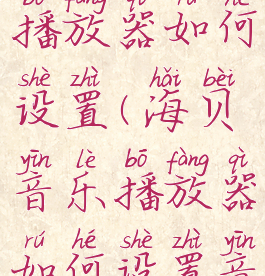 bō fàng qì rú hé
播放器如何
shè zhì hǎi bèi
设置(海贝
yīn lè bō fàng qì
音乐播放器
rú hé shè zhì yīn
如何设置音